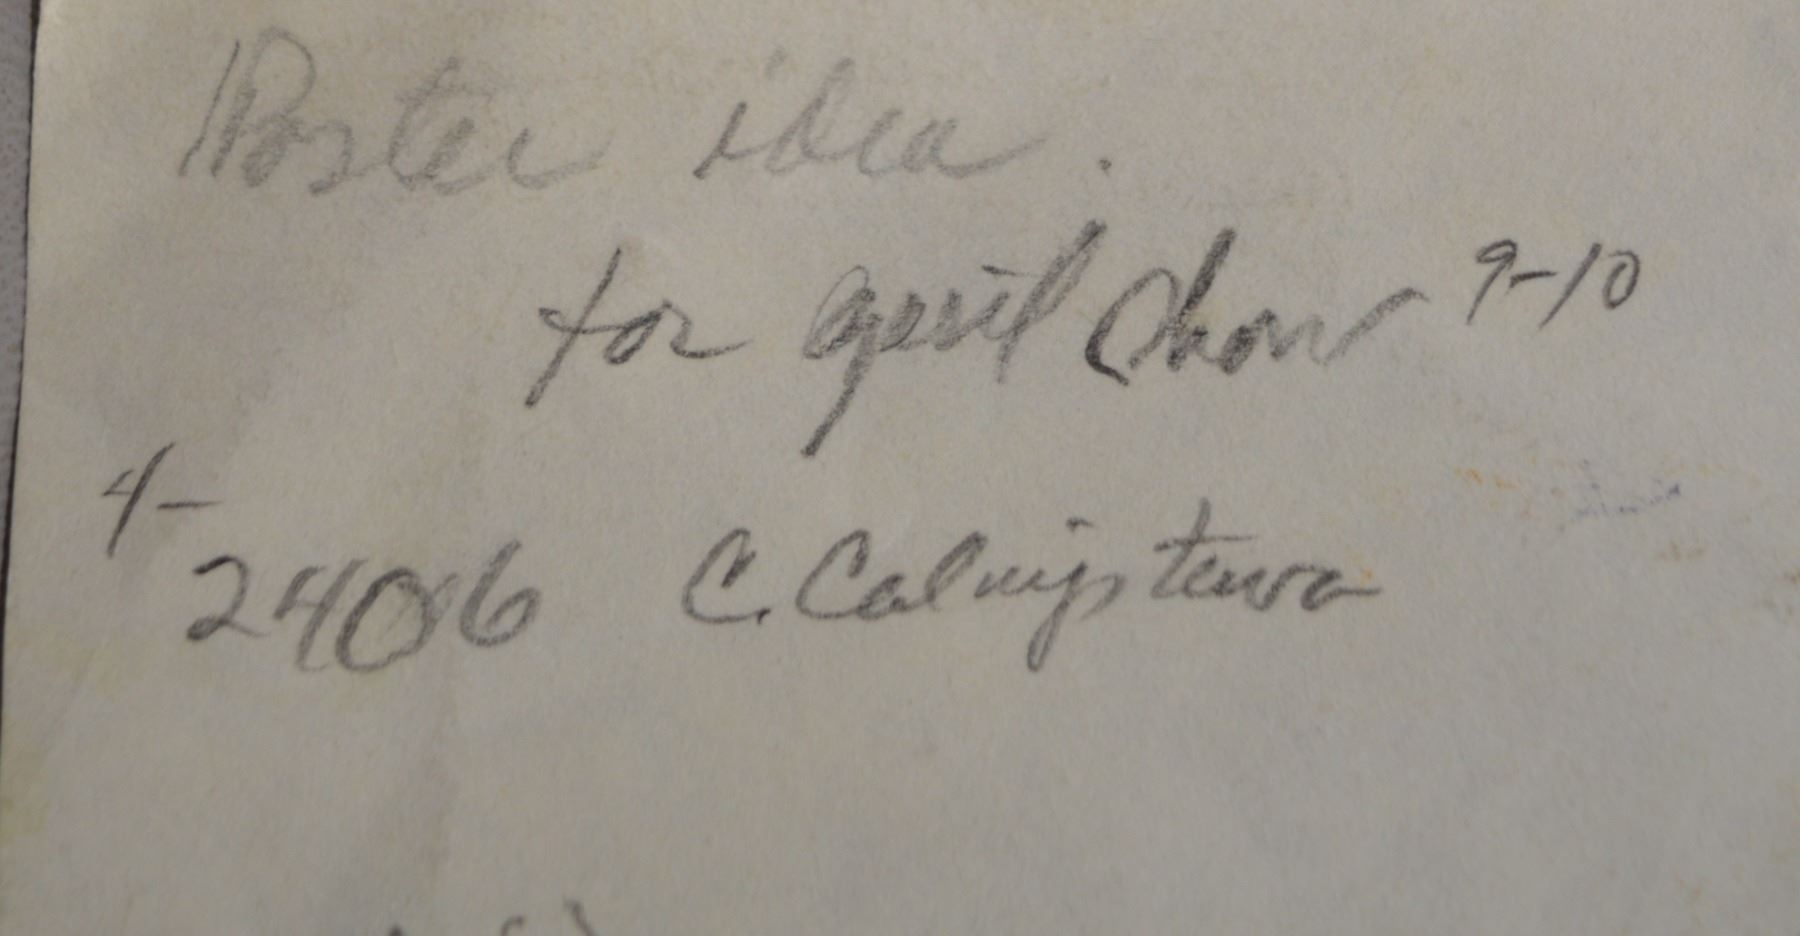 Poster idea.
for april show 9-10
4-
2406 C. Calnijptewa